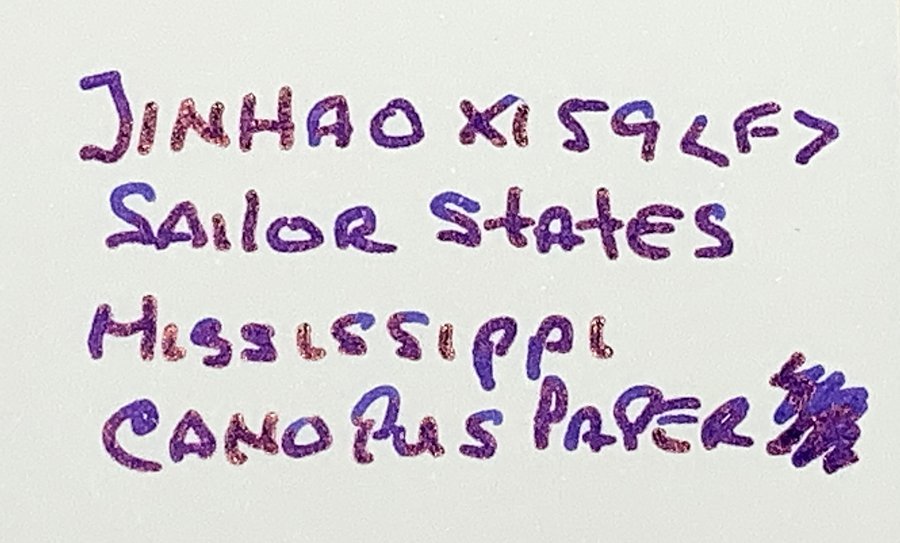 JINHAO X159 <F>
SAilOR StAtES
MISSISSIPPI
CANOPUS PAPER